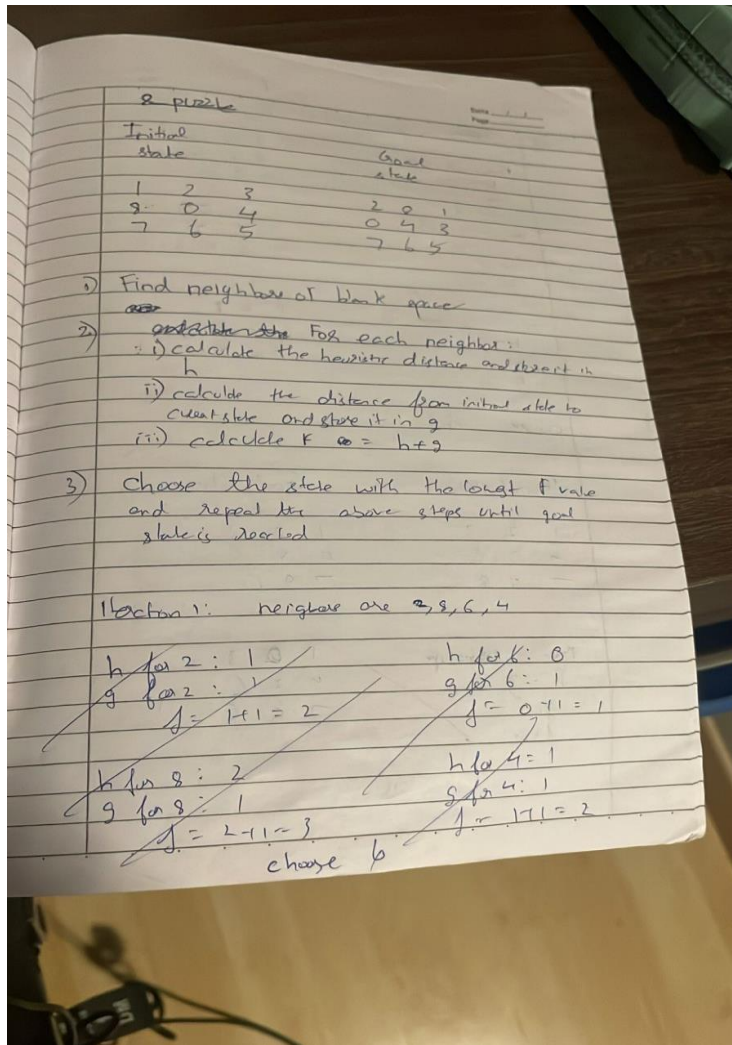 8 puzzle
Initial
state
Goal
state
1 2 3
8 0 4
7 6 5
2 8 1
0 4 3
7 6 5
1) Find neighbors of blank space
2) For each neighbor:
i) calculate the heuristic distance and in
h
ii) calculate the distance from initial state to
current state and store it in g
iii) calculate F = h+g
3) Choose the state with the lowest f value
and repeat the above steps until goal
state is reached
Iteration 1: neighbors are 2, 8, 6, 4
h for 2 : 1
g for 2 : 1
f = 1+1 = 2
h for 6: 0
g for 6: 1
f = 0+1 = 1
h for 8: 2
g for 8: 1
f = 2+1 = 3
h for 4= 1
g for 4: 1
f = 1+1 = 2
choose 6